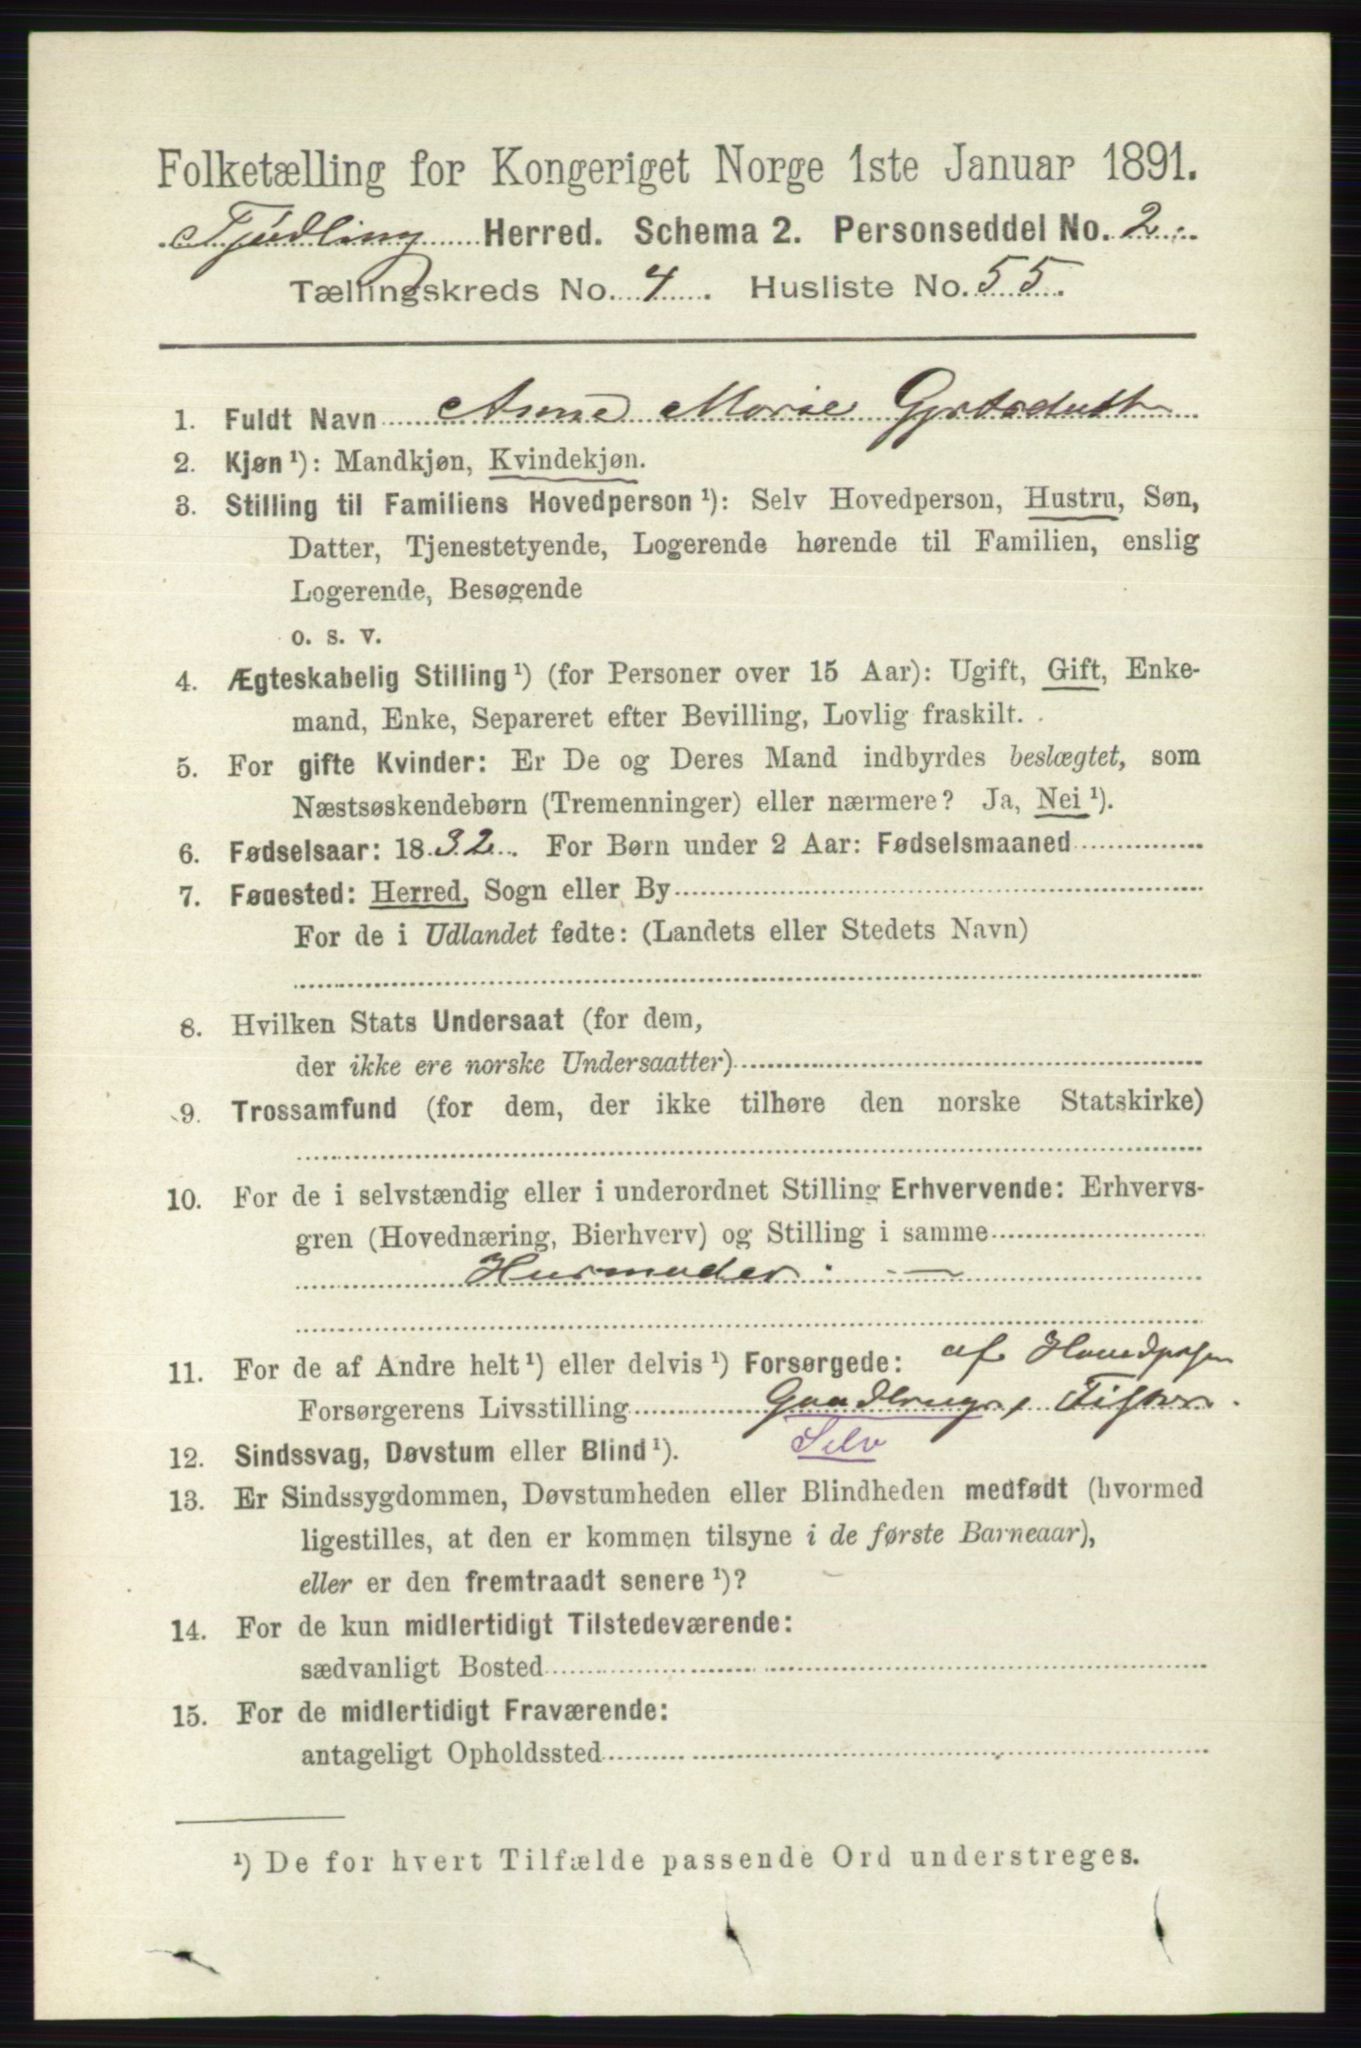 Folketælling for Kongeriget Norge 1ste Januar 1891.
Tjødling Herred. Schema 2. Personseddel No. 2.
Tællingskreds No. 4. Husliste No. 55.
1. Fuldt Navn Anne Marie
2. Kjøn ¹): Mandkjøn, Kvindekjøn.
3. Stilling til Familiens Hovedperson ¹): Selv Hovedperson, Hustru, Søn,
Datter, Tjenestetyende, Logerende hørende til Familien, enslig
Logerende, Besøgende
o. s. v.
4. Ægteskabelig Stilling ¹) (for Personer over 15 Aar): Ugift, Gift, Enke-
mand, Enke, Separeret efter Bevilling, Lovlig fraskilt.
5. For gifte Kvinder: Er De og Deres Mand indbyrdes beslægtet, som
Næstsøskendebørn (Tremenninger) eller nærmere? Ja, Nei ¹).
6. Fødselsaar: 1832. For Børn under 2 Aar: Fødselsmaaned
7. Fødested: Herred, Sogn eller By
For de i Udlandet fødte: (Landets eller Stedets Navn)
8. Hvilken Stats Undersaat (for dem,
der ikke ere norske Undersaatter)
9. Trossamfund (for dem, der ikke tilhøre den norske Statskirke)
10. For de i selvstændig eller i underordnet Stilling Erhvervende: Erhvervs-
gren (Hovednæring, Bierhverv) og Stilling i samme
Husmoder. —
11. For de af Andre helt ¹) eller delvis ¹) Forsørgede: af
Forsørgerens Livsstilling Gaardbruger, Fisker.
12. Sindssvag, Døvstum eller Blind ¹). Selv
13. Er Sindssygdommen, Døvstumheden eller Blindheden medfødt (hvormed
ligestilles, at den er kommen tilsyne i de første Barneaar),
eller er den fremtraadt senere ¹)?
14. For de kun midlertidigt Tilstedeværende:
sædvanligt Bosted
15. For de midlertidigt Fraværende:
antageligt Opholdssted
¹) De for hvert Tilfælde passende Ord understreges.